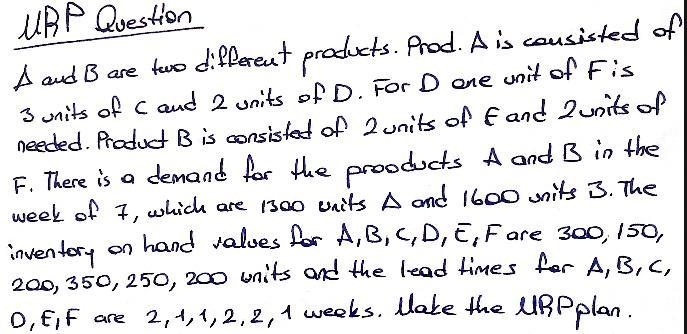 MRP Question
A and B are two different products. Prod. A is consisted of
3 units of C and 2 units of D. For D one unit of F is
needed. Product B is consisted of 2 units of E and 2 units of
F. There is a demand for the prooducts A and B in the
week of 7, which are 1300 units A and 1600 units B. The
inventory on hand values for A, B, C, D, E, F are 300, 150,
200, 350, 250, 200 units and the lead times for A, B, C,
D, E, F are 2, 1, 1, 2, 2, 1 weeks. Make the MRP plan.